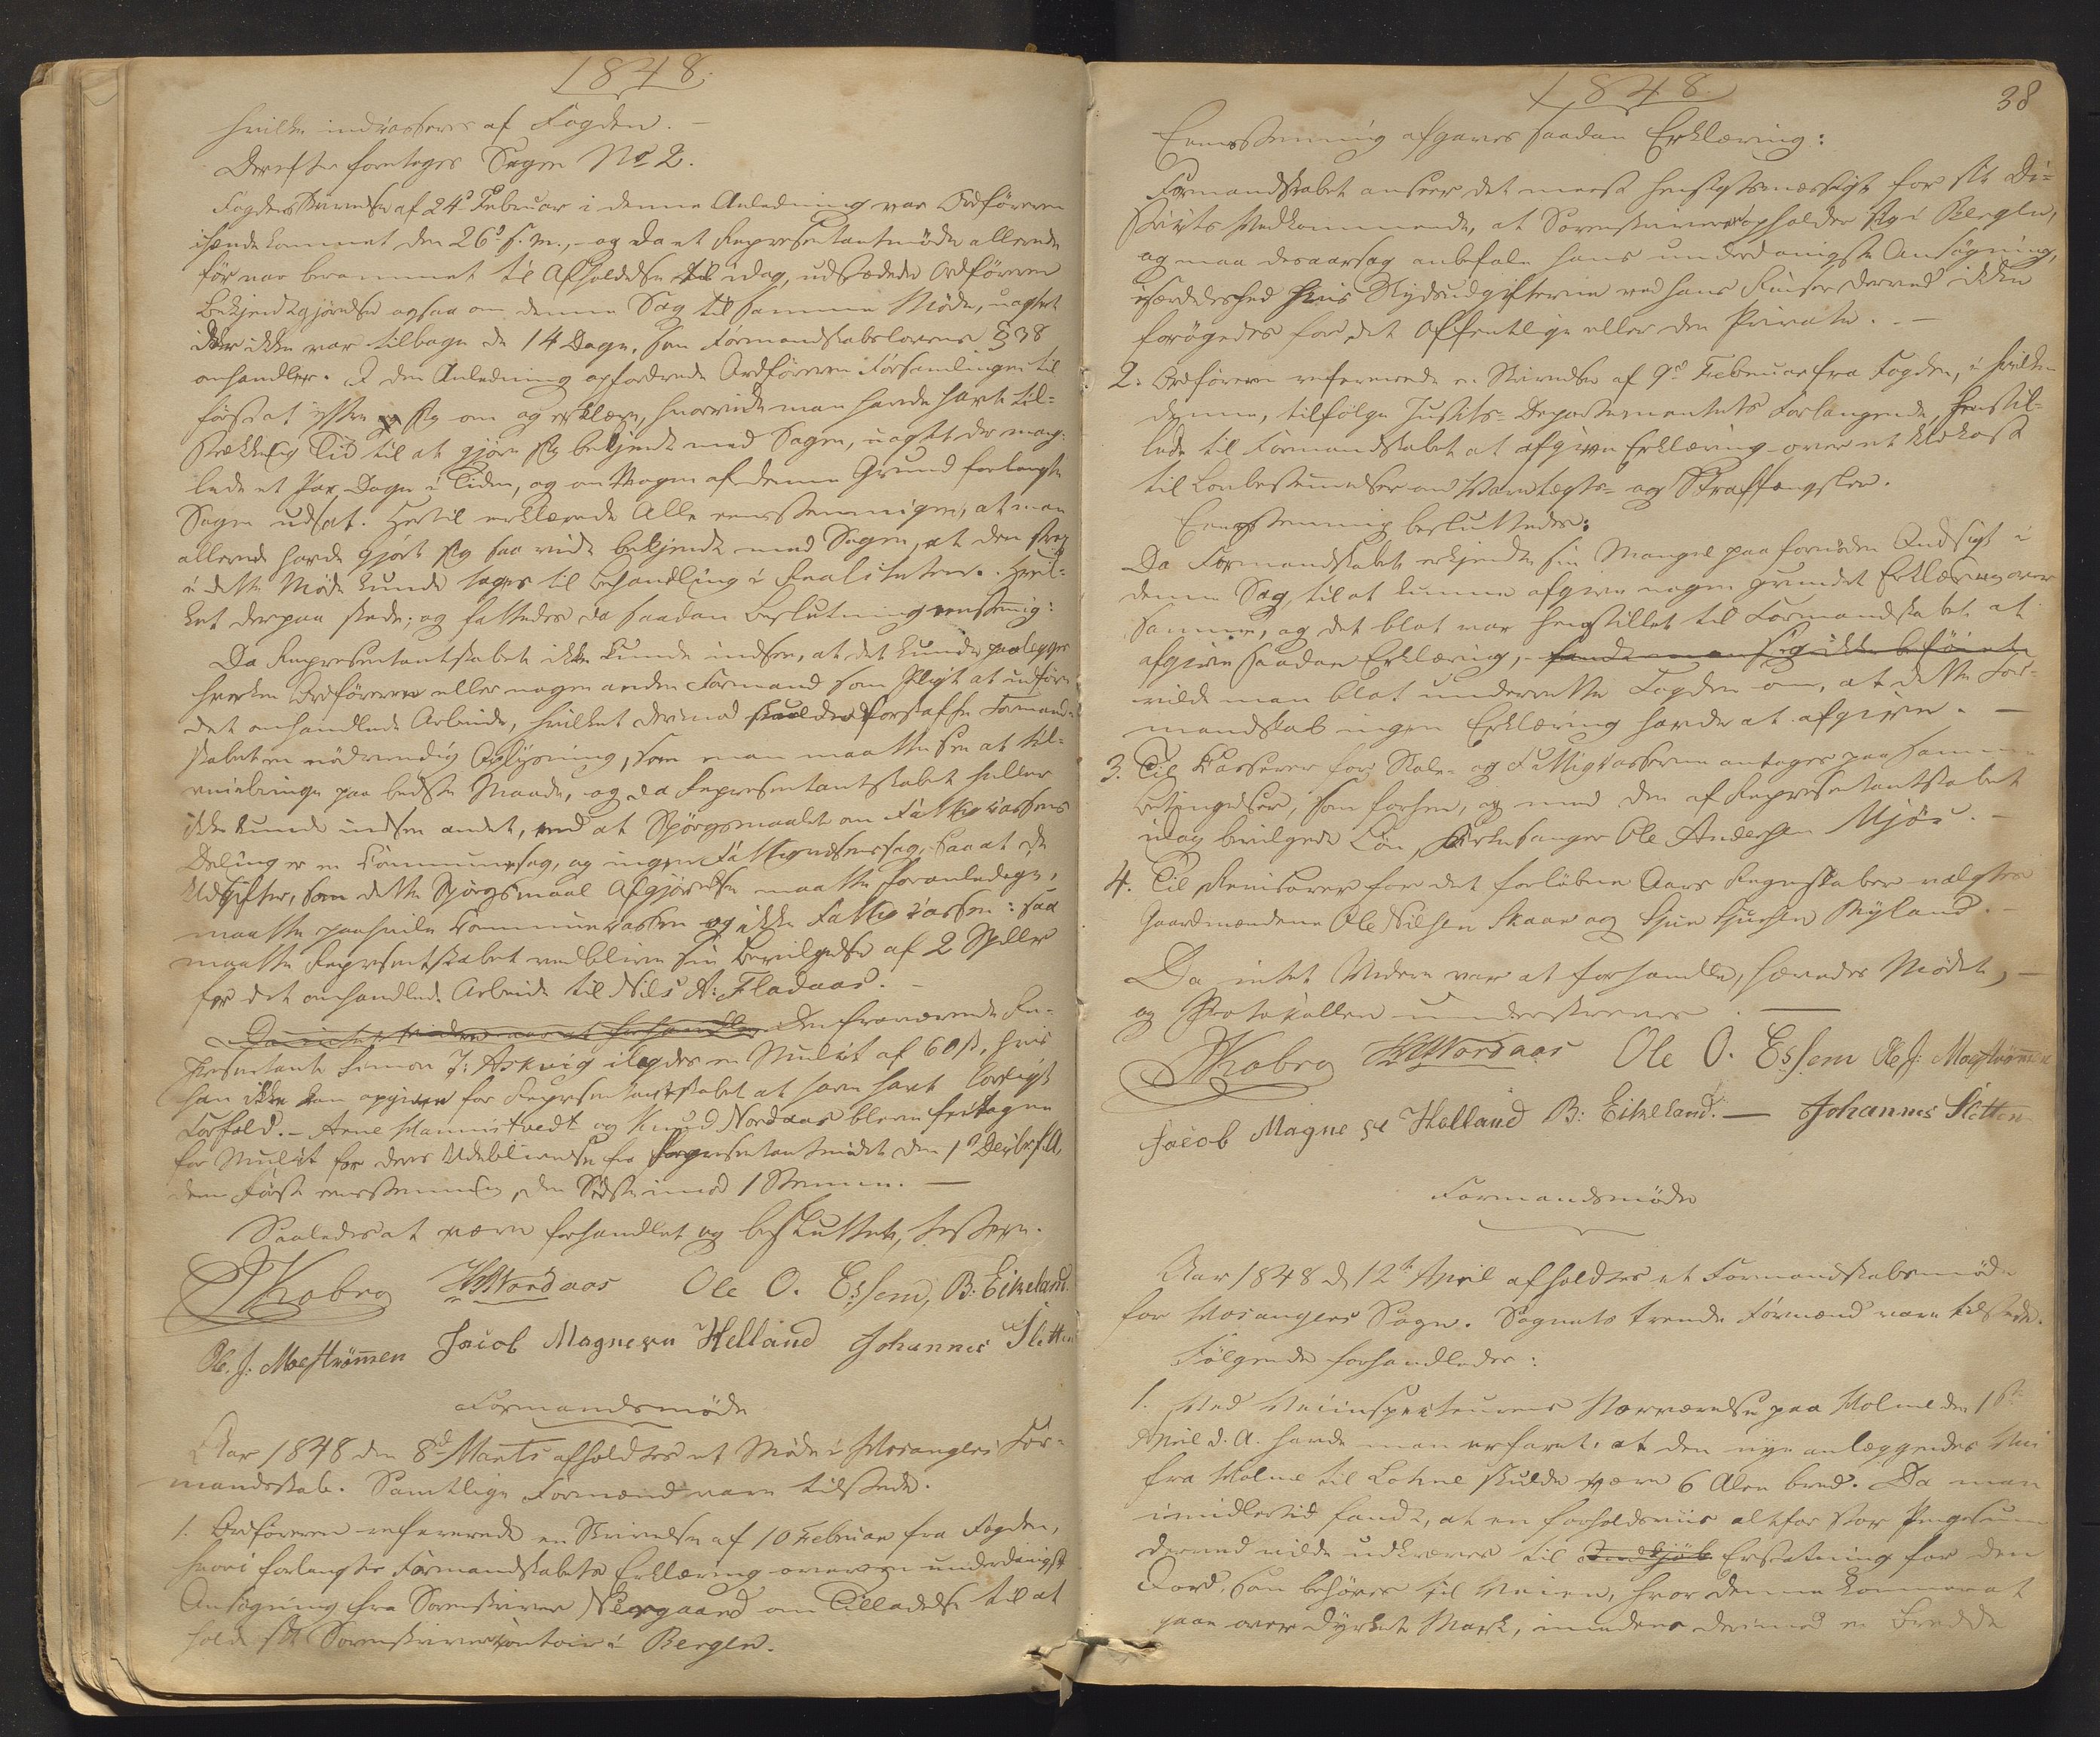 1848.
hvilke indkasseres af Fogden. —
Derefter foretoges Sagen No 2.
Fogdens Skrivelse af 24de Februar i denne Anledning var Ordføreren
ihændekommet den 26de s. M., - og da et Repræsentantmøde allerede
før var berammet til Afholdelse til idag, udstedede Ordføreren
Bekjendtgjørelse ogsaa om denne Sag til samme Møde, uagtet
der ikke var tilbage de 14 Dage, som Formandskabslovens § 38
omhandler. I den Anledning opfordrede Ordføreren Forsamlingen til
først at yttre sig om og erklære, hvorvidt man havde havt til-
strækkelig Tid til at gjøre sig bekjendt med Sagen, uagtet der mang-
lede et Par Dage i Tiden, og om Nogen af denne Grund forlangte
Sagen udsat. Hertil erklærede Alle eensstemmigen, at man
allerede havde gjort sig saa vidt bekjendt med Sagen, at den strax
i dette Møde kunde tages til Behandling i Realiteten. Hvil-
ket derpaa skede; og fattedes da saadan Beslutning eensstemmig:
Da Repræsentantskabet ikke kunde indsee, at det kunde paalægges
hverken Ordføreren eller nogen anden Formand som Pligt at udføre
det omhandlede Arbeide, hvilket derimod skulde forskaffe Formand-
skabet en nødvendig Oplysning, som man maatte see at til-
veiebringe paa bedste Maade, og da Repræsentantskabet heller
ikke kunde indsee andet, end at Spørgsmaalet om Fattigkassens
Deling er en Kommunesag, og ingen Fattigvæsenssag, saa at de
Udgifter, som dette Spørgsmaals Afgjørelse maatte foranledige,
maatte paahvile Kommunekassen og ikke Fattigkassen: saa
maatte Repræsentskabet vedblive sin Bevilgelse af 2 Spdlr
for det omhandlede Arbeide til Nils A: Fladaas. —
Da intet videre var at forhandle Den fraværende Re-
præsentant Simon J: Askvig ilagdes en Mulct af 60 s, hvis
han ikke kan opgive for Repræsentantskabet at have havt lovligt
Forfald. - Arne Mannistvedt og Knud Nordaas bleve fritagne
for Mulct for deres Udeblivelse fra Repræsentantmødet den 1de Decbr f. A.
den Første eensstemmig, den Sidste imod 1 Stemme. —
Saaledes at være forhandlet og besluttet, testere.
JKobro HNordaas Ole O. Essem, B: Eikeland.
Ole. J: Molstrømmen Jacob Magnesen Helland Johannes Sletten
Formandsmøde
Aar 1848 den 8de Marts afholdtes et Møde i Hosangers For-
mandskab. Samtlige Formænd vare tilstede.
1. Ordføreren refererede en Skrivelse af 10 Februar fra Fogden,
hvori forlangtes Formandskabets Erklæring over en underdanigst
Ansøgning fra Sorenskriver Neergaard om Tilladelse til at
holde sit Sorenskriverkontoir i Bergen.
1848.
38
Eensstemmig afgaves saadan Erklæring:
Formandskabet anseer det meest hensigtsmæssigt for sit Di-
strikts Vedkommende, at Sorenskriveren opholder sig i Bergen,
og maa desaarsag anbefale hans underdanigste Ansøgning,
især ved Skydsudgifterne ved hans Reiser derved ikke
forøgedes for det Offentlige eller den Private. —
2. Ordføreren refererede en Skrivelse af 9de Februar fra Fogden, i hvilken
denne, tilfølge Justits-Departementets Forlangende, henstil-
lede til Formandskabet at afgive Erklæring over et Udkast
til Lovbestemmelser om Varetægts- og Straffængsler.
Eensstemmig besluttedes:
Da Formandskabet erkjendte sin Mangel paa fornøden Indsigt i
denne Sag, til at kunne afgive nogen grundet Erklæring over
samme, og det blot var henstillet til Formandskabet at
afgive saadan Erklæring, - fandt man sig ikke beføiet
vilde man blot underrette Fogden om, at dette For-
mandskab ingen Erklæring havde at afgive. —
3. Til Kasserer for Skole- og Fattigkasserne antages paa samme
Betingelser, som forhen, og med den af Repræsentantskabet
idag bevilgede Løn, Kirkesanger Ole Andersen Mjøs. —
4. Til Revisorer for det forløbne Aars Regnskaber valgtes
Gaardmændene Ole Nilsen Skaar og Byland. —
Da intet Videre var at forhandle, hævedes Mødet, —
og Protokollen underskreves. —
JKobro HNordaas Ole O. Essem Ole J: Molstrømmen
Jacob Magnesen Helland B: Eikeland. — Johannes Sletten
Formandsmøde
Aar 1848 d. 12te April afholdtes et Formandskabsmøde
for Hosangers Sogn. Sognets trende Formænd vare tilstede.
Følgende forhandledes:
1. Ved Veiinspecteurens Nærværelse paa Holme den 1ste
April d. A. havde man erfaret, at den nye anlæggendes Vei
fra Holme til Lohne skulde være 6 Alen bred. Da man
imidlertid fandt, at en forholdsviis altfor stor Pengesum
derved vilde udkræves til Indkjøb Erstatning for den
Jord, som behøves til Veien, hvor denne kommer at
gaae over dyrket Mark, imedens derimod en Bredde